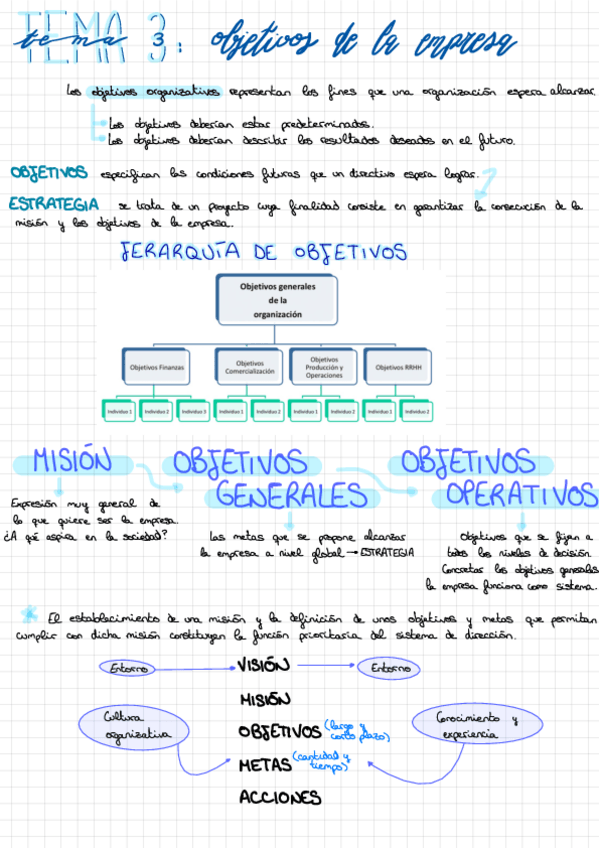 TEMA 3
tema 3: objetivos de la empresa
Los objetivos organizativos representan los fines que una organización espera alcanzar.
Los objetivos deberían estar predeterminados.
Los objetivos deberían describir los resultados deseados en el futuro.
OBJETIVOS especifican las condiciones futuras que un directivo espera lograr.
ESTRATEGIA se trata de un proyecto cuya finalidad consiste en garantizar la consecución de la
misión y los objetivos de la empresa.
JERARQUÍA DE OBJETIVOS
Objetivos generales
de la
organización
Objetivos Finanzas
Objetivos
Comercialización
Objetivos
Producción y
Operaciones
Objetivos RRHH
Individuo 1
Individuo 2
Individuo 3
Individuo 1
Individuo 2
Individuo 1
Individuo 2
Individuo 1
Individuo 2
MISIÓN
OBJETIVOS
GENERALES
OBJETIVOS
OPERATIVOS
Expresión muy general de
lo que quiere ser la empresa.
¿A qué aspira en la sociedad?
Las metas que se propone alcanzar
la empresa a nivel global → ESTRATEGIA
Objetivos que se fijan a
todos los niveles de decisión.
Concretar los objetivos generales
la empresa funciona como sistema.
* El establecimiento de una misión y la definición de unos objetivos y metas que permitan
cumplir con dicha misión constituyen la función prioritaria del sistema de dirección.
Entorno
VISIÓN
Entorno
MISIÓN
Cultura
organizativa
OBJETIVOS (largo y
corto plazo)
Conocimiento y
experiencia
METAS (cantidad y
tiempo)
ACCIONES